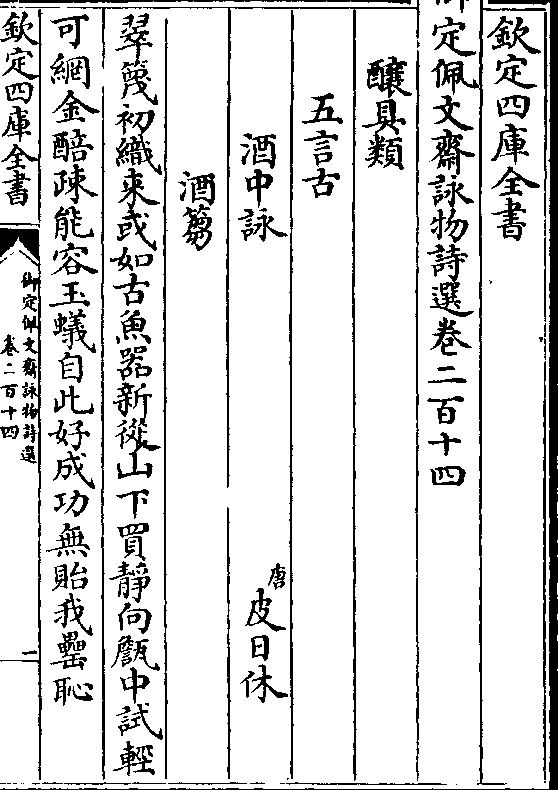 欽定四庫全書
御定佩文齋詠物詩選卷二百十四
釀具類
五言古
酒中詠
唐皮日休
酒篘
翠篾初織來或如古魚器新從山下買靜向甔中試輕
可網金醅疎能容玉蟻自此好成功無貽我罍恥
欽定四庫全書
御定佩文齋詠物詩選
卷二百十四
一